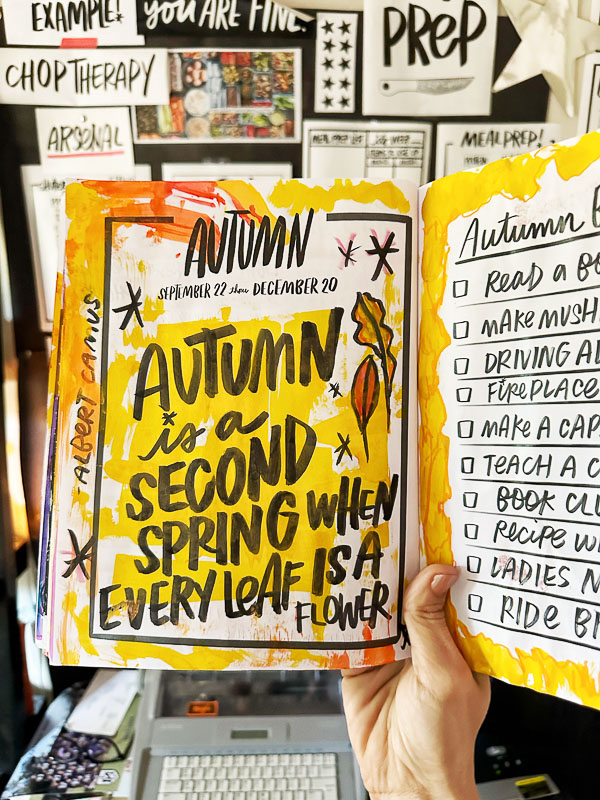 EXAMPLE!
YOU ARE FINE!
PREP
CHOP THERAPY
ARSENAL
MEAL PREP LIST
MEAL PREP!
AUTUMN
SEPTEMBER 22 thru DECEMBER 20
AUTUMN
is a
SECOND
SPRING WHEN
EVERY LEAF IS A
FLOWER.
-ALBERT CAMUS
Autumn
READ A
MAKE
DRIVING
FIREPLACE
MAKE A
TEACH A
BOOK
RECIPE
LADIES
RIDE